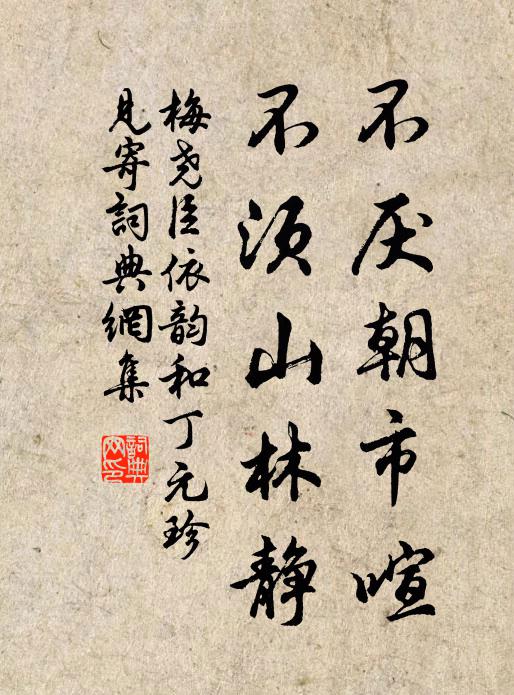 不厌朝市喧
不须山林静
梅尧臣依韵和丁元珍
见寄詞典網集
詞典網印